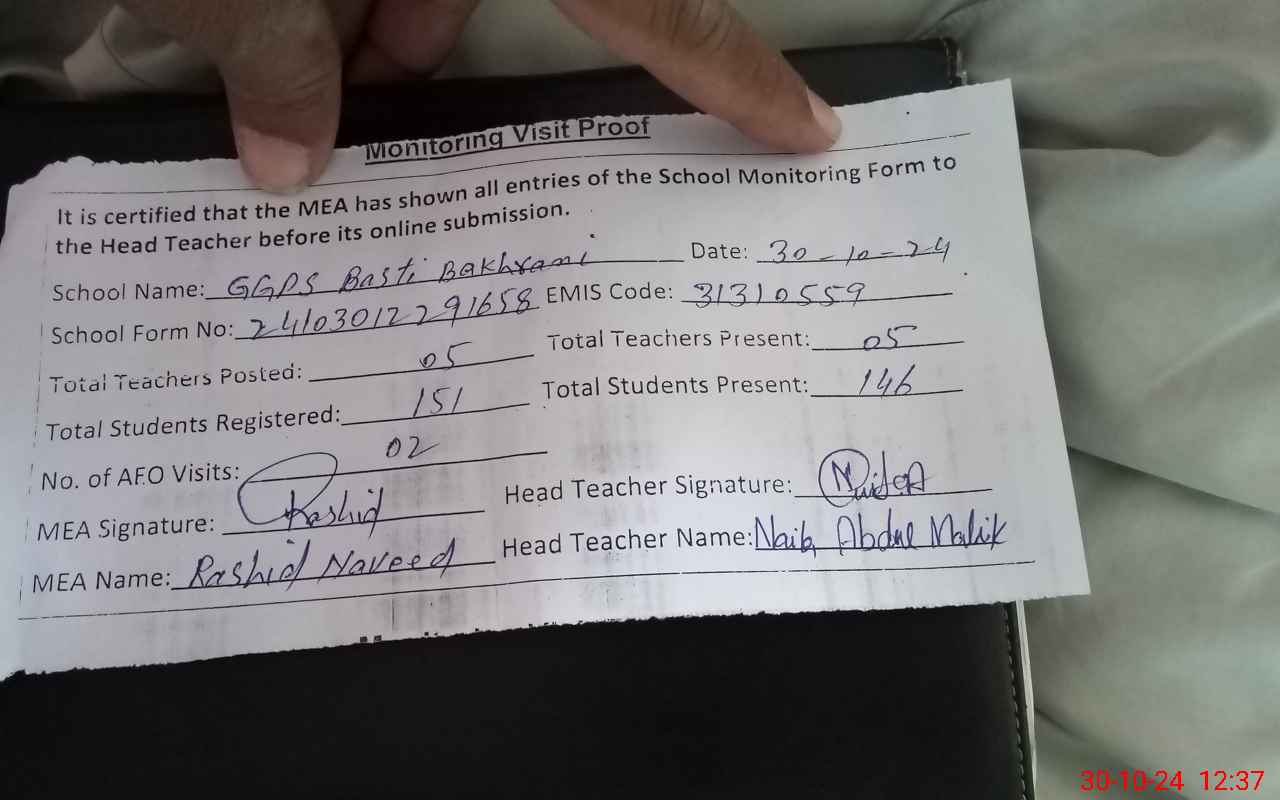 Monitoring Visit Proof
It is certified that the MEA has shown all entries of the School Monitoring Form to
the Head Teacher before its online submission.
School Name: GGPS Basti Bakhrani Date: 30-10-24
School Form No: 24103012291658 EMIS Code: 31310559
Total Teachers Posted: 05 Total Teachers Present: 05
Total Students Registered: 151 Total Students Present: 146
No. of AFO Visits: 02
MEA Signature: Rashid Head Teacher Signature:
MEA Name: Rashid Naveed Head Teacher Name: Abdul Malik
30-10-24 12:37